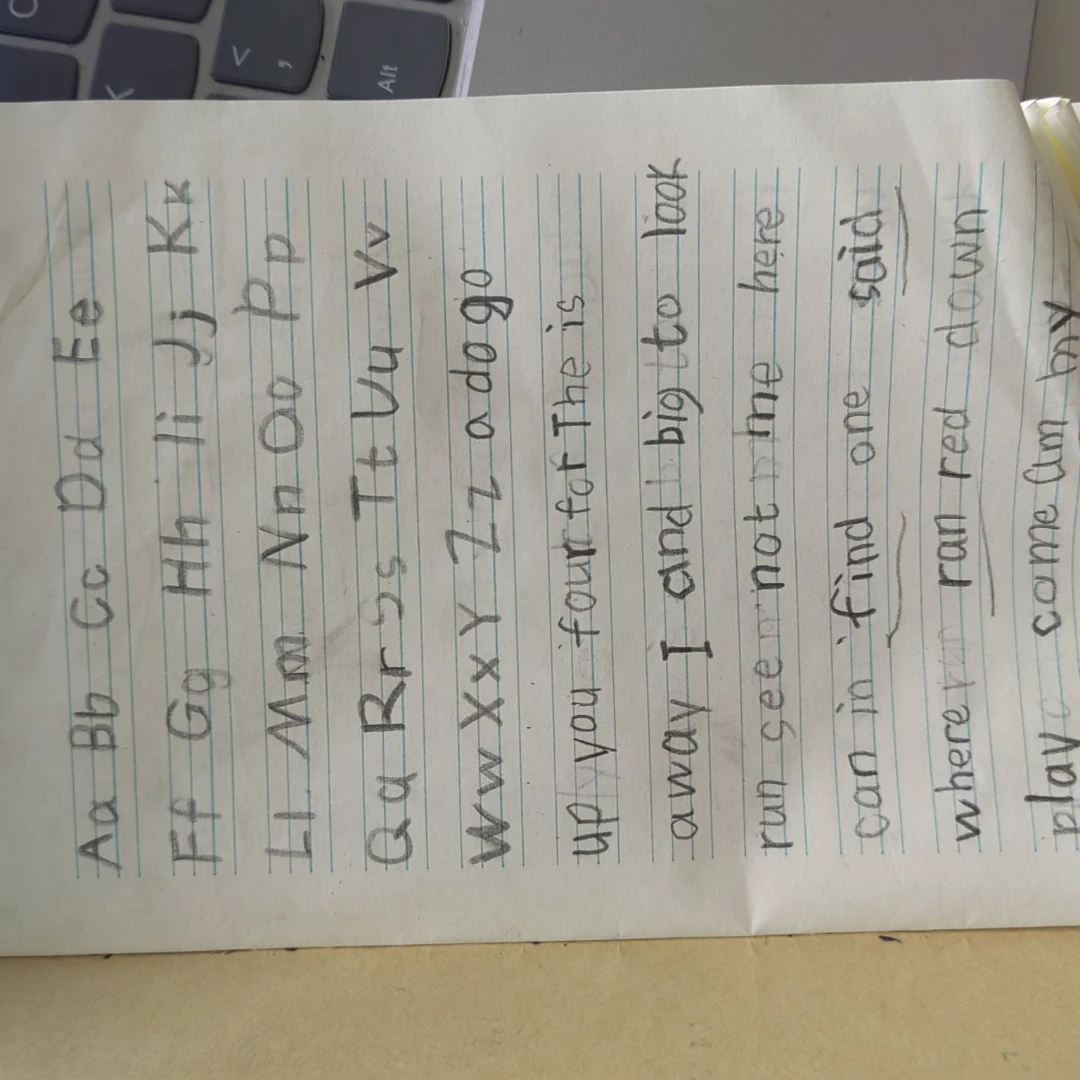 Aa Bb Cc Dd Ee
Ff Gg Hh Ii Jj Kk
Ll Mm Nn Oo Pp
Qq Rr Ss Tt Uu Vv
Ww Xx Y Zz a do go
up you four for The is
away I and big to look
run see not me here
can in find one said
where ran red down
play come am my
K
< ,
Alt